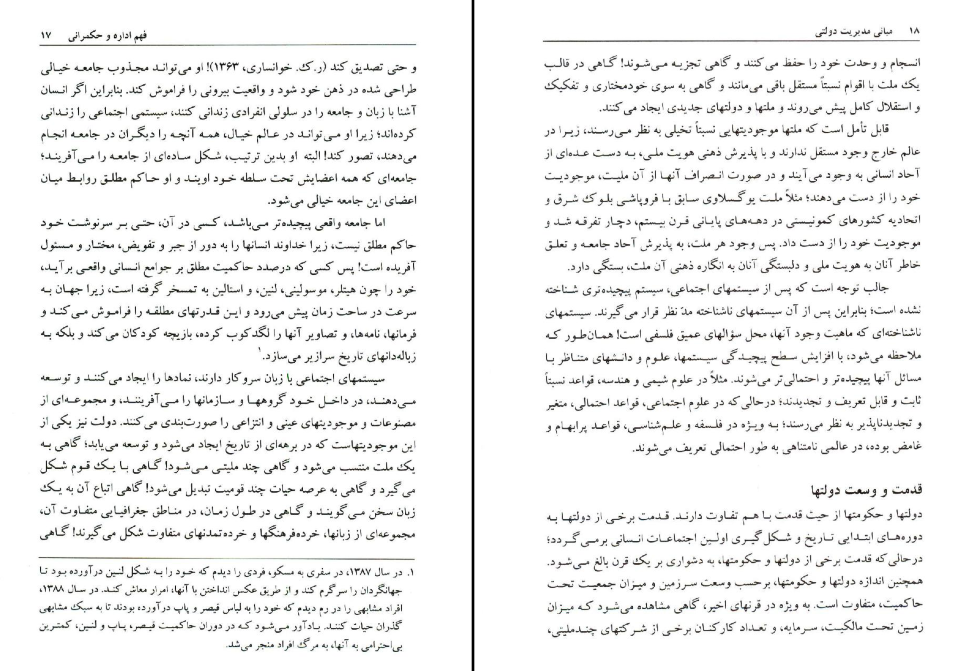 فهم اداره و حکمرانی ۱۷
و حتی تصدیق کند (ر.ک. خوانساری، ۱۳۶۳)! او می‌تواند مجذوب جامعه خیالی
طراحی شده در ذهن خود شود و واقعیت بیرونی را فراموش کند. بنابراین اگر انسان
آشنا با زبان و جامعه را در سلولی انفرادی زندانی کنند، سیستمی اجتماعی را زندانی
کرده‌اند؛ زیرا او می‌تواند در عالم خیال، همه آنچه را دیگران در جامعه انجام
می‌دهند، تصور کند! البته او بدین ترتیب، شکل ساده‌ای از جامعه را می‌آفریند؛
جامعه‌ای که همه اعضایش تحت سلطه خود اویند و او حاکم مطلق روابط میان
اعضای این جامعه خیالی می‌شود.
اما جامعه واقعی پیچیده‌تر می‌باشد، کسی در آن، حتی بر سرنوشت خود
حاکم مطلق نیست، زیرا خداوند انسانها را به دور از جبر و تفویض، مختار و مسئول
آفریده است! پس کسی که درصدد حاکمیت مطلق بر جوامع انسانی واقعی برآید،
خود را چون هیتلر، موسولینی، لنین، و استالین به تمسخر گرفته است، زیرا جهان به
سرعت در ساحت زمان پیش می‌رود و این قدرتهای مطلقه را فراموش می‌کند و
فرمانها، نامه‌ها، و تصاویر آنها را لگدکوب کرده، بازیچه کودکان می‌کند و بلکه به
زباله‌دانهای تاریخ سرازیر می‌سازد.۱
سیستمهای اجتماعی با زبان سروکار دارند، نمادها را ایجاد می‌کنند و توسعه
می‌دهند، در داخل خود گروهها و سازمانها را می‌آفرینند، و مجموعه‌ای از
مصنوعات و موجودیتهای عینی و انتزاعی را صورت‌بندی می‌کنند. دولت نیز یکی از
این موجودیتهاست که در برهه‌ای از تاریخ ایجاد می‌شود و توسعه می‌یابد؛ گاهی به
یک ملت منتسب می‌شود و گاهی چند ملیتی می‌شود! گاهی با یک قوم شکل
می‌گیرد و گاهی به عرصه حیات چند قومیت تبدیل می‌شود! گاهی اتباع آن به یک
زبان سخن می‌گویند و گاهی در طول زمان، در مناطق جغرافیایی متفاوت آن،
مجموعه‌ای از زبانها، خرده‌فرهنگها و خرده‌تمدنهای متفاوت شکل می‌گیرند! گاهی
۱. در سال ۱۳۸۷، در سفری به مسکو، فردی را دیدم که خود را به شکل لنین درآورده بود تا
جهانگردان را سرگرم کند و از طریق عکس انداختن با آنها، امرار معاش کند. در سال ۱۳۸۸،
افراد مشابهی را در رم دیدم که خود را به لباس قیصر و پاپ درآورده بودند تا به سبک مشابهی
گذران حیات کنند. یادآور می‌شود که در دوران حاکمیت قیصر، پاپ و لنین، کمترین
بی‌احترامی به آنها، به مرگ افراد منجر می‌شد.
۱۸ مبانی مدیریت دولتی
انسجام و وحدت خود را حفظ می‌کنند و گاهی تجزیه می‌شوند! گاهی در قالب
یک ملت با اقوام نسبتاً مستقل باقی می‌مانند و گاهی به سوی خودمختاری و تفکیک
و استقلال کامل پیش می‌روند و ملتها و دولتهای جدیدی ایجاد می‌کنند.
قابل تأمل است که ملتها موجودیتهایی نسبتاً تخیلی به نظر می‌رسند، زیرا در
عالم خارج وجود مستقل ندارند و با پذیرش ذهنی هویت ملی، به دست عده‌ای از
آحاد انسانی به وجود می‌آیند و در صورت انصراف آنها از آن ملیت، موجودیت
خود را از دست می‌دهند؛ مثلاً ملت یوگسلاوی سابق با فروپاشی بلوک شرق و
اتحادیه کشورهای کمونیستی در دهه‌های پایانی قرن بیستم، دچار تفرقه شد و
موجودیت خود را از دست داد. پس وجود هر ملت، به پذیرش آحاد جامعه و تعلق
خاطر آنان به هویت ملی و دلبستگی آنان به انگاره ذهنی آن ملت، بستگی دارد.
جالب توجه است که پس از سیستمهای اجتماعی، سیستم پیچیده‌تری شناخته
نشده است؛ بنابراین پس از آن سیستمهای ناشناخته مدّ نظر قرار می‌گیرند. سیستمهای
ناشناخته‌ای که ماهیت وجود آنها، محل سؤالهای عمیق فلسفی است! همان‌طور که
ملاحظه می‌شود، با افزایش سطح پیچیدگی سیستمها، علوم و دانشهای متناظر با
مسائل آنها پیچیده‌تر و احتمالی‌تر می‌شوند. مثلاً در علوم شیمی و هندسه، قواعد نسبتاً
ثابت و قابل تعریف و تجدیدند؛ درحالی‌که در علوم اجتماعی، قواعد احتمالی، متغیر
و تجدیدناپذیر به نظر می‌رسند؛ به ویژه در فلسفه و علم‌شناسی، قواعد پرابهام و
غامض بوده، در عالمی نامتناهی به طور احتمالی تعریف می‌شوند.
قدمت و وسعت دولتها
دولتها و حکومتها از حیث قدمت با هم تفاوت دارند. قدمت برخی از دولتها به
دوره‌های ابتدایی تاریخ و شکل‌گیری اولین اجتماعات انسانی برمی‌گردد؛
درحالی‌که قدمت برخی از دولتها و حکومتها، به دشواری بر یک قرن بالغ می‌شود.
همچنین اندازه دولتها و حکومتها، برحسب وسعت سرزمین و میزان جمعیت تحت
حاکمیت، متفاوت است. به ویژه در قرنهای اخیر، گاهی مشاهده می‌شود که میزان
زمین تحت مالکیت، سرمایه، و تعداد کارکنان برخی از شرکتهای چندملیتی،